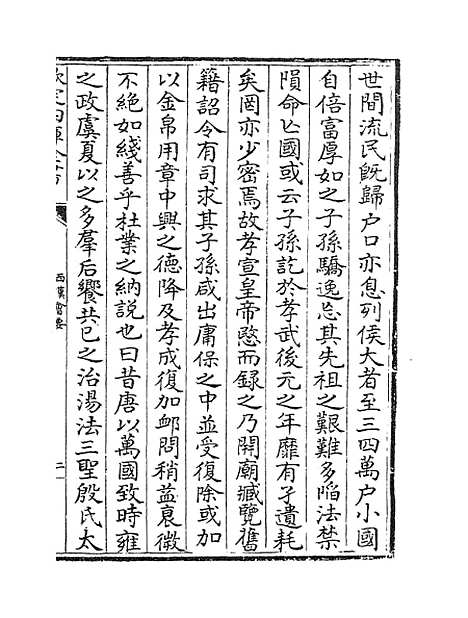 世間流民既歸户口亦息列侯大者至三四萬户小國
自倍富厚如之子孫驕逸忘其先祖之艱難多陥法禁
隕命亡國或云子孫訖於孝武後元之年靡有孑遺耗
矣罔亦少密焉故孝宣皇帝愍而録之乃開廟臧覽舊
籍詔令有司求其子孫咸出庸保之中並受復除或加
以金帛用章中興之德降及孝成復加䘏問稍益衰微
不絶如綫善乎杜業之納説也曰昔唐以萬國致時雍
之政虞夏以之多羣后饗共已之治湯法三聖殷氏太
欽定四庫全書
西漢會要
二